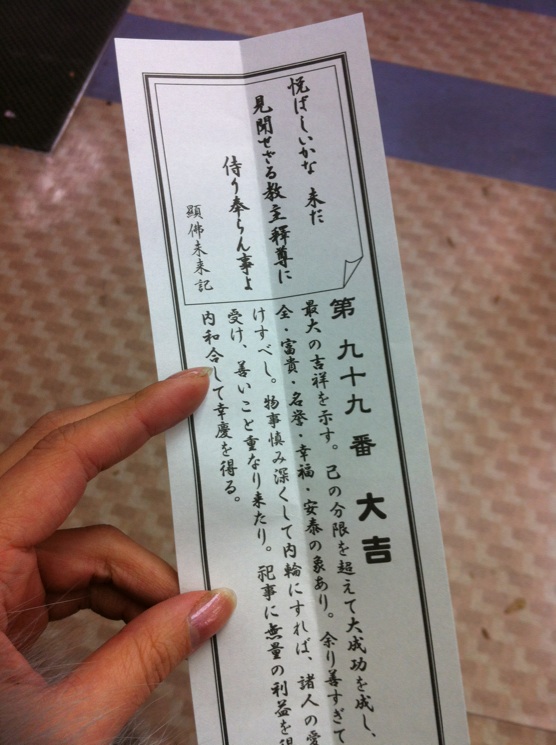 悦ばしいかな 未だ
見聞せざる教主釈尊に
侍り奉らん事よ
顕佛未来記
第九十九番 大吉
最大の吉祥を示す。己の分限を超えて大成功を成し、
全・富貴・名誉・幸福・安泰の象あり。余り善すぎて
けすべし。物事慎み深くして内輪にすれば、諸人の愛
受け、善いこと重なり来たり。祀事に無量の利益を得
内和合して幸慶を得る。